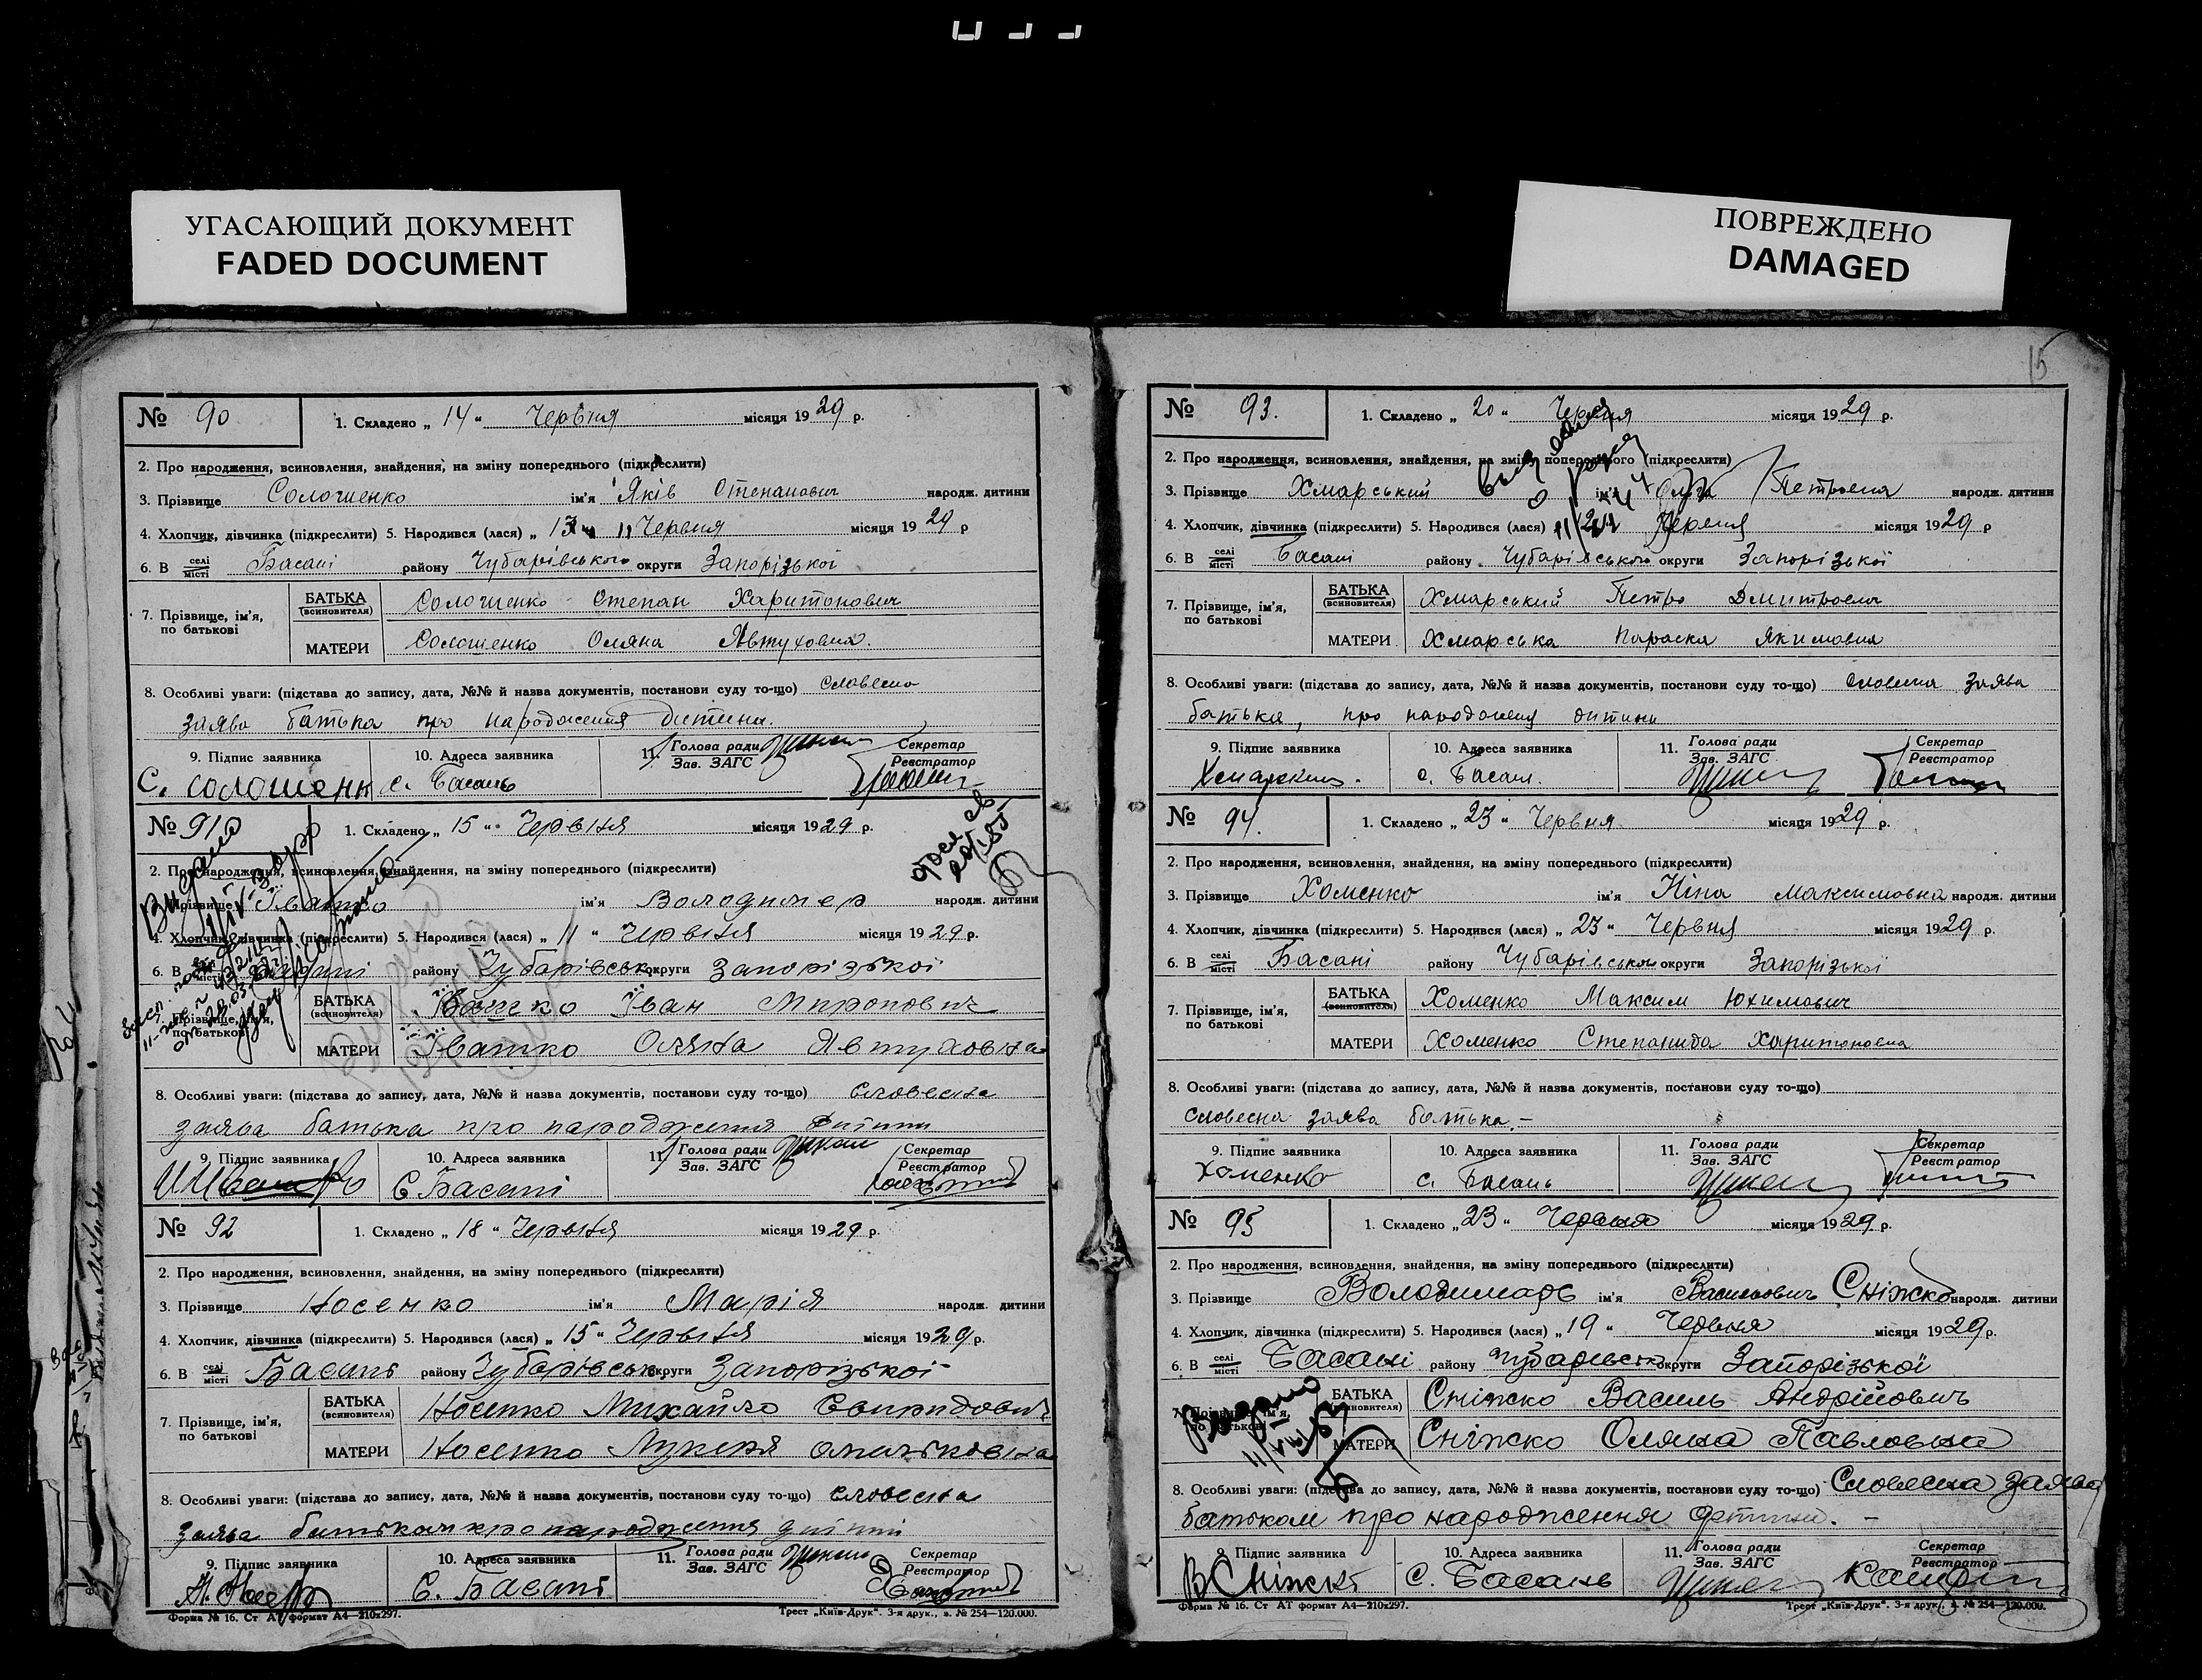 УГАСАЮЩИЙ ДОКУМЕНТ
FADED DOCUMENT
ПОВРЕЖДЕНО
DAMAGED
№ 90
1. Складено „ 14 “ Червня місяця 1929 р.
2. Про народження, всиновлення, знайдення, на зміну попереднього (підкреслити)
3. Прізвище Солошенко ім'я Яків Степанович народж. дитини
4. Хлопчик, дівчинка (підкреслити) 5. Народився (лася) „ 13 “ Червня місяця 1929 р
6. В селі місті Басані району Чубарівського округи Запорізької
7. Прізвище, ім'я, по батькові
БАТЬКА (всиновителя) Солошенко Степан Харитонович
МАТЕРИ Солошенко Оляна Явтуховна.
8. Особливі уваги: (підстава до запису, дата, №№ й назва документів, постанови суду то-що) Словесно
заява батька про народження дитини.
9. Підпис заявника 10. Адреса заявника 11. Голова ради Зав. ЗАГС Секретар Реєстратор
С. Солошенк с. Басань
№ 91
1. Складено „ 15 “ Червня місяця 1929 р.
2. Про народження, всиновлення, знайдення, на зміну попереднього (підкреслити)
Прізвище Івашко ім'я Володимер народж. дитини
4. Хлопчик, дівчинка (підкреслити) 5. Народився (лася) „ 11 “ Червня місяця 1929 р.
6. В селі місті Басані району Чубарівськ. округи Запорізької
7. Прізвище, ім'я, по батькові
БАТЬКА (всиновителя) Івашко Іван Миронович
МАТЕРИ Івашко Оляна Явтуховна
8. Особливі уваги: (підстава до запису, дата, №№ й назва документів, постанови суду то-що) Словесна
заява батька про народження дитини
9. Підпис заявника 10. Адреса заявника 11. Голова ради Зав. ЗАГС Секретар Реєстратор
С Басані
№ 92
1. Складено „ 18 “ Червня місяця 1929 р.
2. Про народження, всиновлення, знайдення, на зміну попереднього (підкреслити)
3. Прізвище Носенко ім'я Марія народж. дитини
4. Хлопчик, дівчинка (підкреслити) 5. Народився (лася) „ 15 “ Червня місяця 1929 р.
6. В селі місті Басань району Чубарівськ. округи Запорізької
7. Прізвище, ім'я, по батькові
БАТЬКА (всиновителя) Носенко Михайло Свиридович
МАТЕРИ Носенко Лукеря Омельковна
8. Особливі уваги: (підстава до запису, дата, №№ й назва документів, постанови суду то-що) Словесна
заява батьком про народження дитини
9. Підпис заявника 10. Адреса заявника 11. Голова ради Зав. ЗАГС Секретар Реєстратор
С. Басань
Форма № 16. Ст АТ формат А4—210x297. Трест „Київ-Друк“. 3-я друк., з. № 254—120.000.
15
№ 93.
1. Складено „ 20 “ Червня місяця 1929 р.
2. Про народження, всиновлення, знайдення, на зміну попереднього (підкреслити)
3. Прізвище Хмарський ім'я Ольга Петровна народж. дитини
4. Хлопчик, дівчинка (підкреслити) 5. Народився (лася) Червня місяця 1929 р
6. В селі місті Басані району Чубарівського округи Запорізької
7. Прізвище, ім'я, по батькові
БАТЬКА (всиновителя) Хмарський Петро Дмитрович
МАТЕРИ Хмарська Параска Якимовна
8. Особливі уваги: (підстава до запису, дата, №№ й назва документів, постанови суду то-що) Словесна заява
батька, про народження дитини
9. Підпис заявника 10. Адреса заявника 11. Голова ради Зав. ЗАГС Секретар Реєстратор
с. Басань.
№ 94.
1. Складено „ 23 “ Червня місяця 1929 р.
2. Про народження, всиновлення, знайдення, на зміну попереднього (підкреслити)
3. Прізвище Хоменко ім'я Ніна Максимовна народж. дитини
4. Хлопчик, дівчинка (підкреслити) 5. Народився (лася) „ 23 “ Червня місяця 1929 р.
6. В селі місті Басані району Чубарівського округи Запорізької
7. Прізвище, ім'я, по батькові
БАТЬКА (всиновителя) Хоменко Максим Юхимович
МАТЕРИ Хоменко Степанида Харитоновна
8. Особливі уваги: (підстава до запису, дата, №№ й назва документів, постанови суду то-що)
словесна заява батька.–
9. Підпис заявника 10. Адреса заявника 11. Голова ради Зав. ЗАГС Секретар Реєстратор
Хоменко с. Басань
№ 95
1. Складено „ 23 “ Червня місяця 1929 р.
2. Про народження, всиновлення, знайдення, на зміну попереднього (підкреслити)
3. Прізвище Володимарь ім'я Васильович Сніжко народж. дитини
4. Хлопчик, дівчинка (підкреслити) 5. Народився (лася) „ 19 “ Червня місяця 1929 р.
6. В селі місті Басані району Чубарівськ округи Запорізької
7. Прізвище, ім'я, по батькові
БАТЬКА (всиновителя) Сніжко Василь Андрійович
МАТЕРИ Сніжко Оляна Павловна
8. Особливі уваги: (підстава до запису, дата, №№ й назва документів, постанови суду то-що) Словесна заява
батьком про народження дитини. –
9. Підпис заявника 10. Адреса заявника 11. Голова ради Зав. ЗАГС Секретар Реєстратор
В Сніжко С. Басань
Форма № 16. Ст АТ формат А4—210x297. Трест „Київ-Друк“. 3-я друк., з. № 254—120.000.